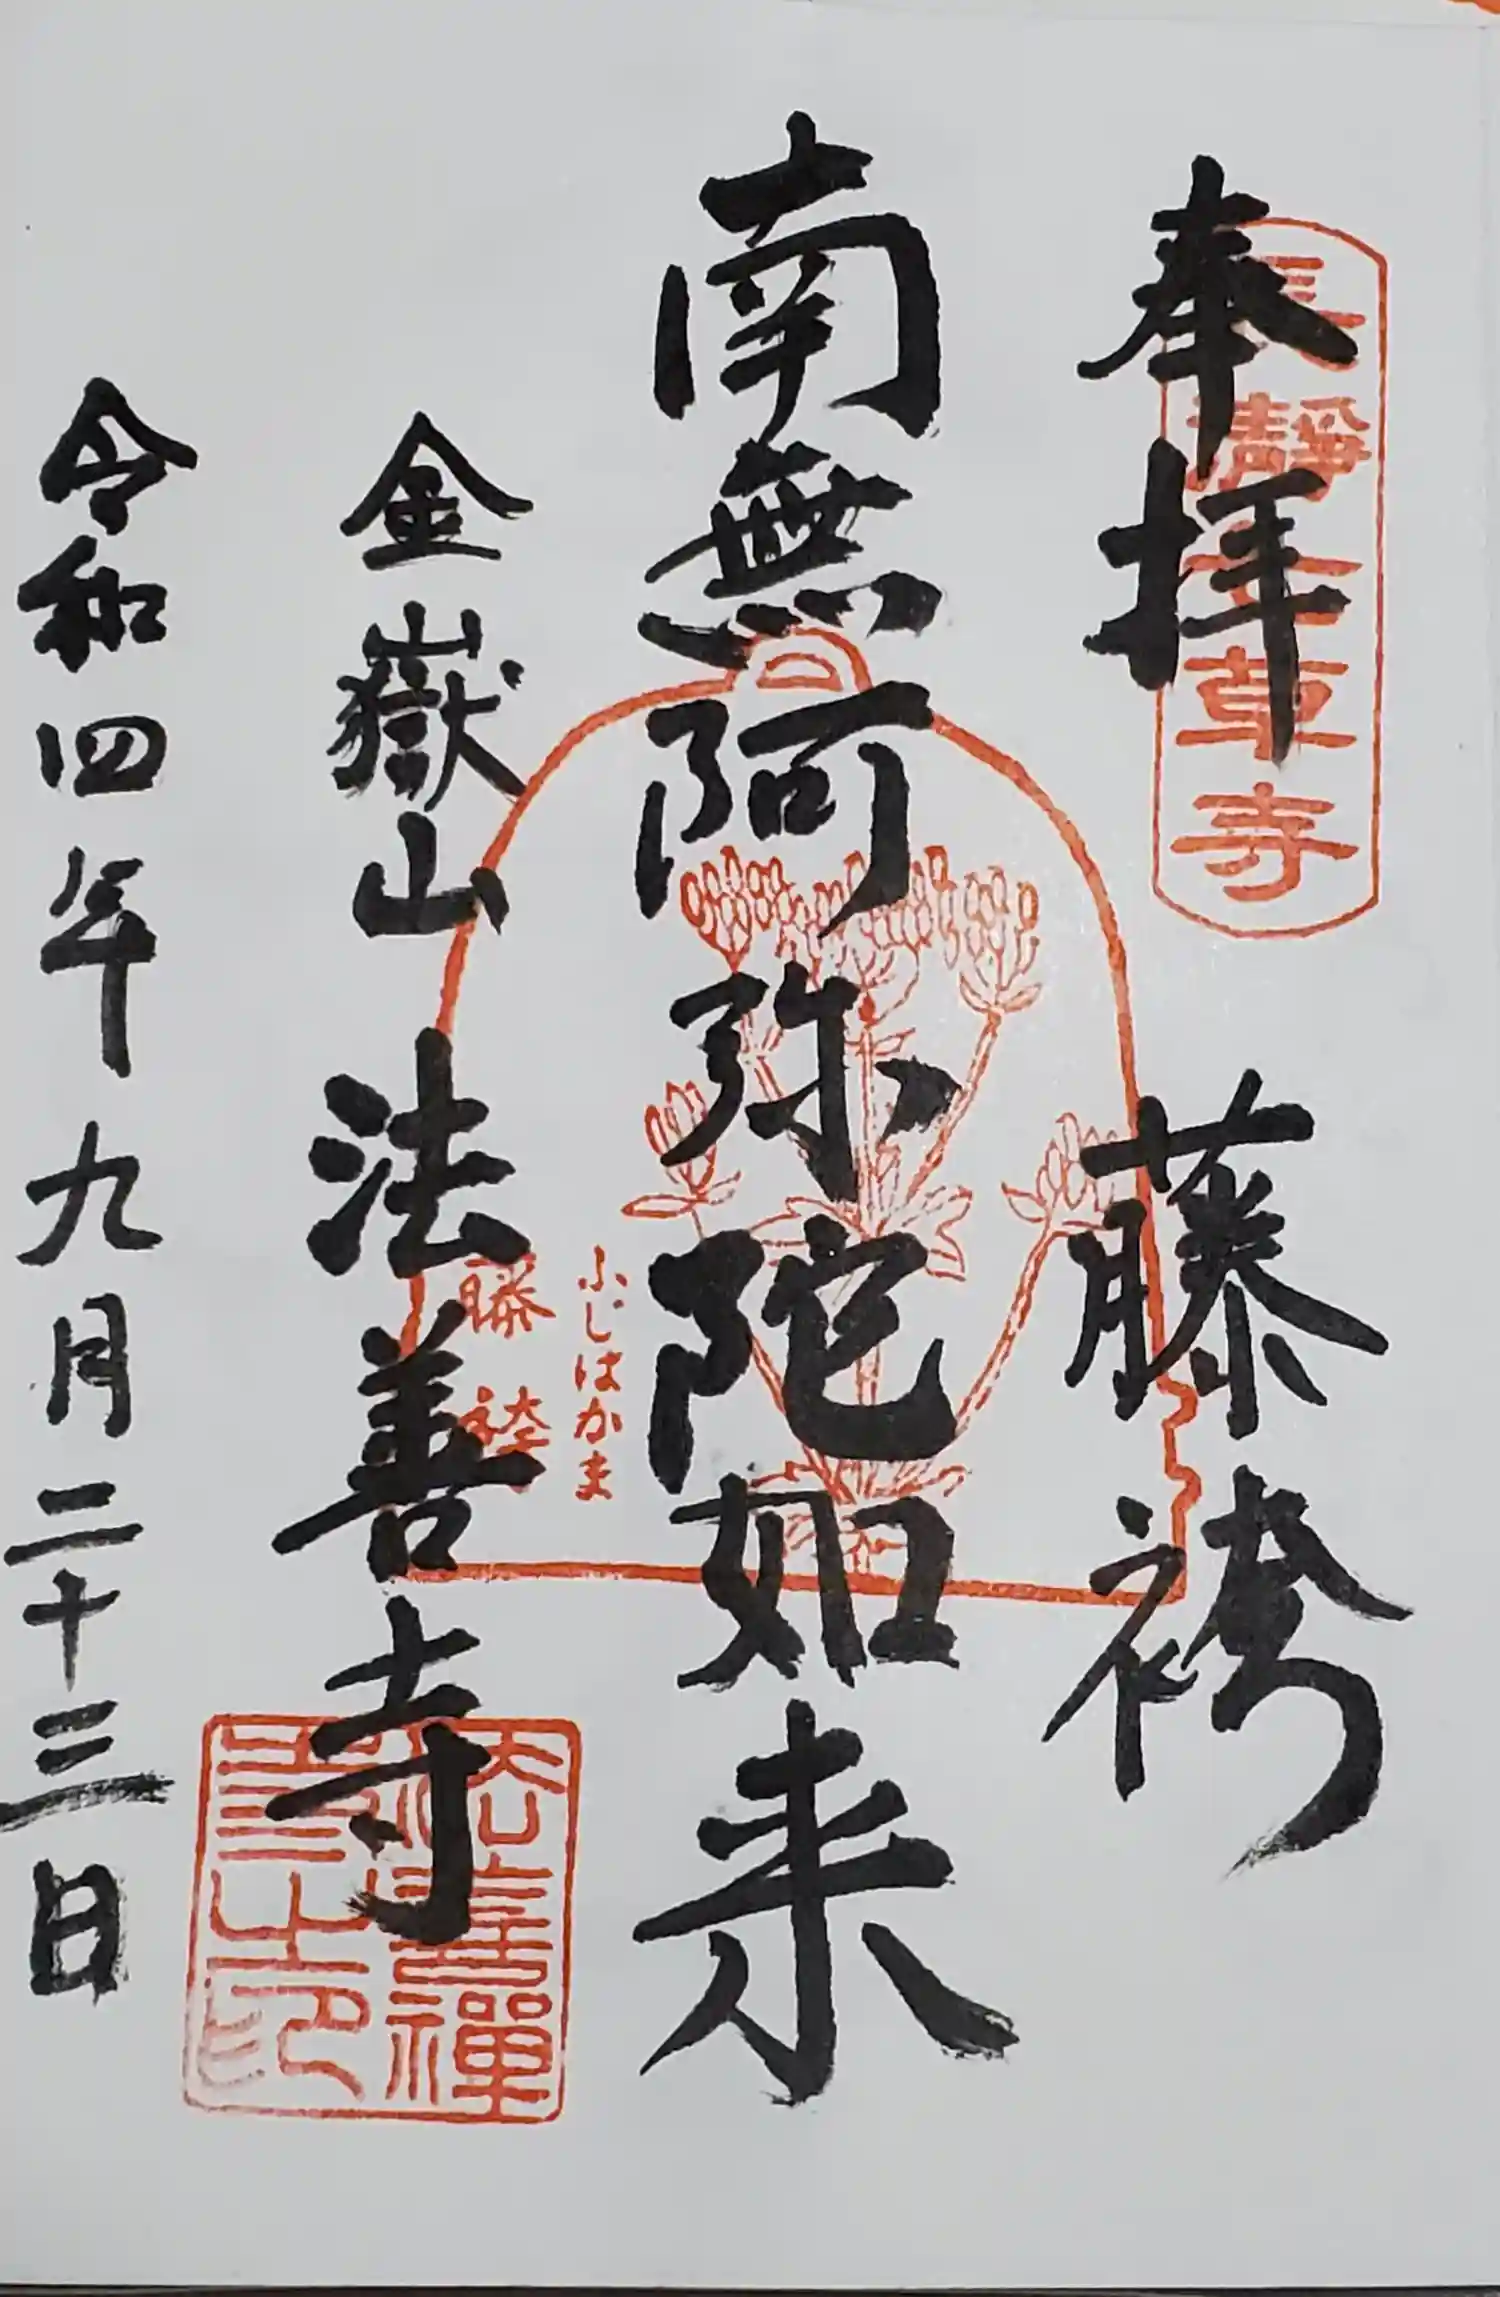 奉拝 藤袴
長瀞七草寺
南無阿弥陀如来
ふじはかま
藤袴
金嶽山 法善寺
法善禪寺之印
令和四年九月二十三日